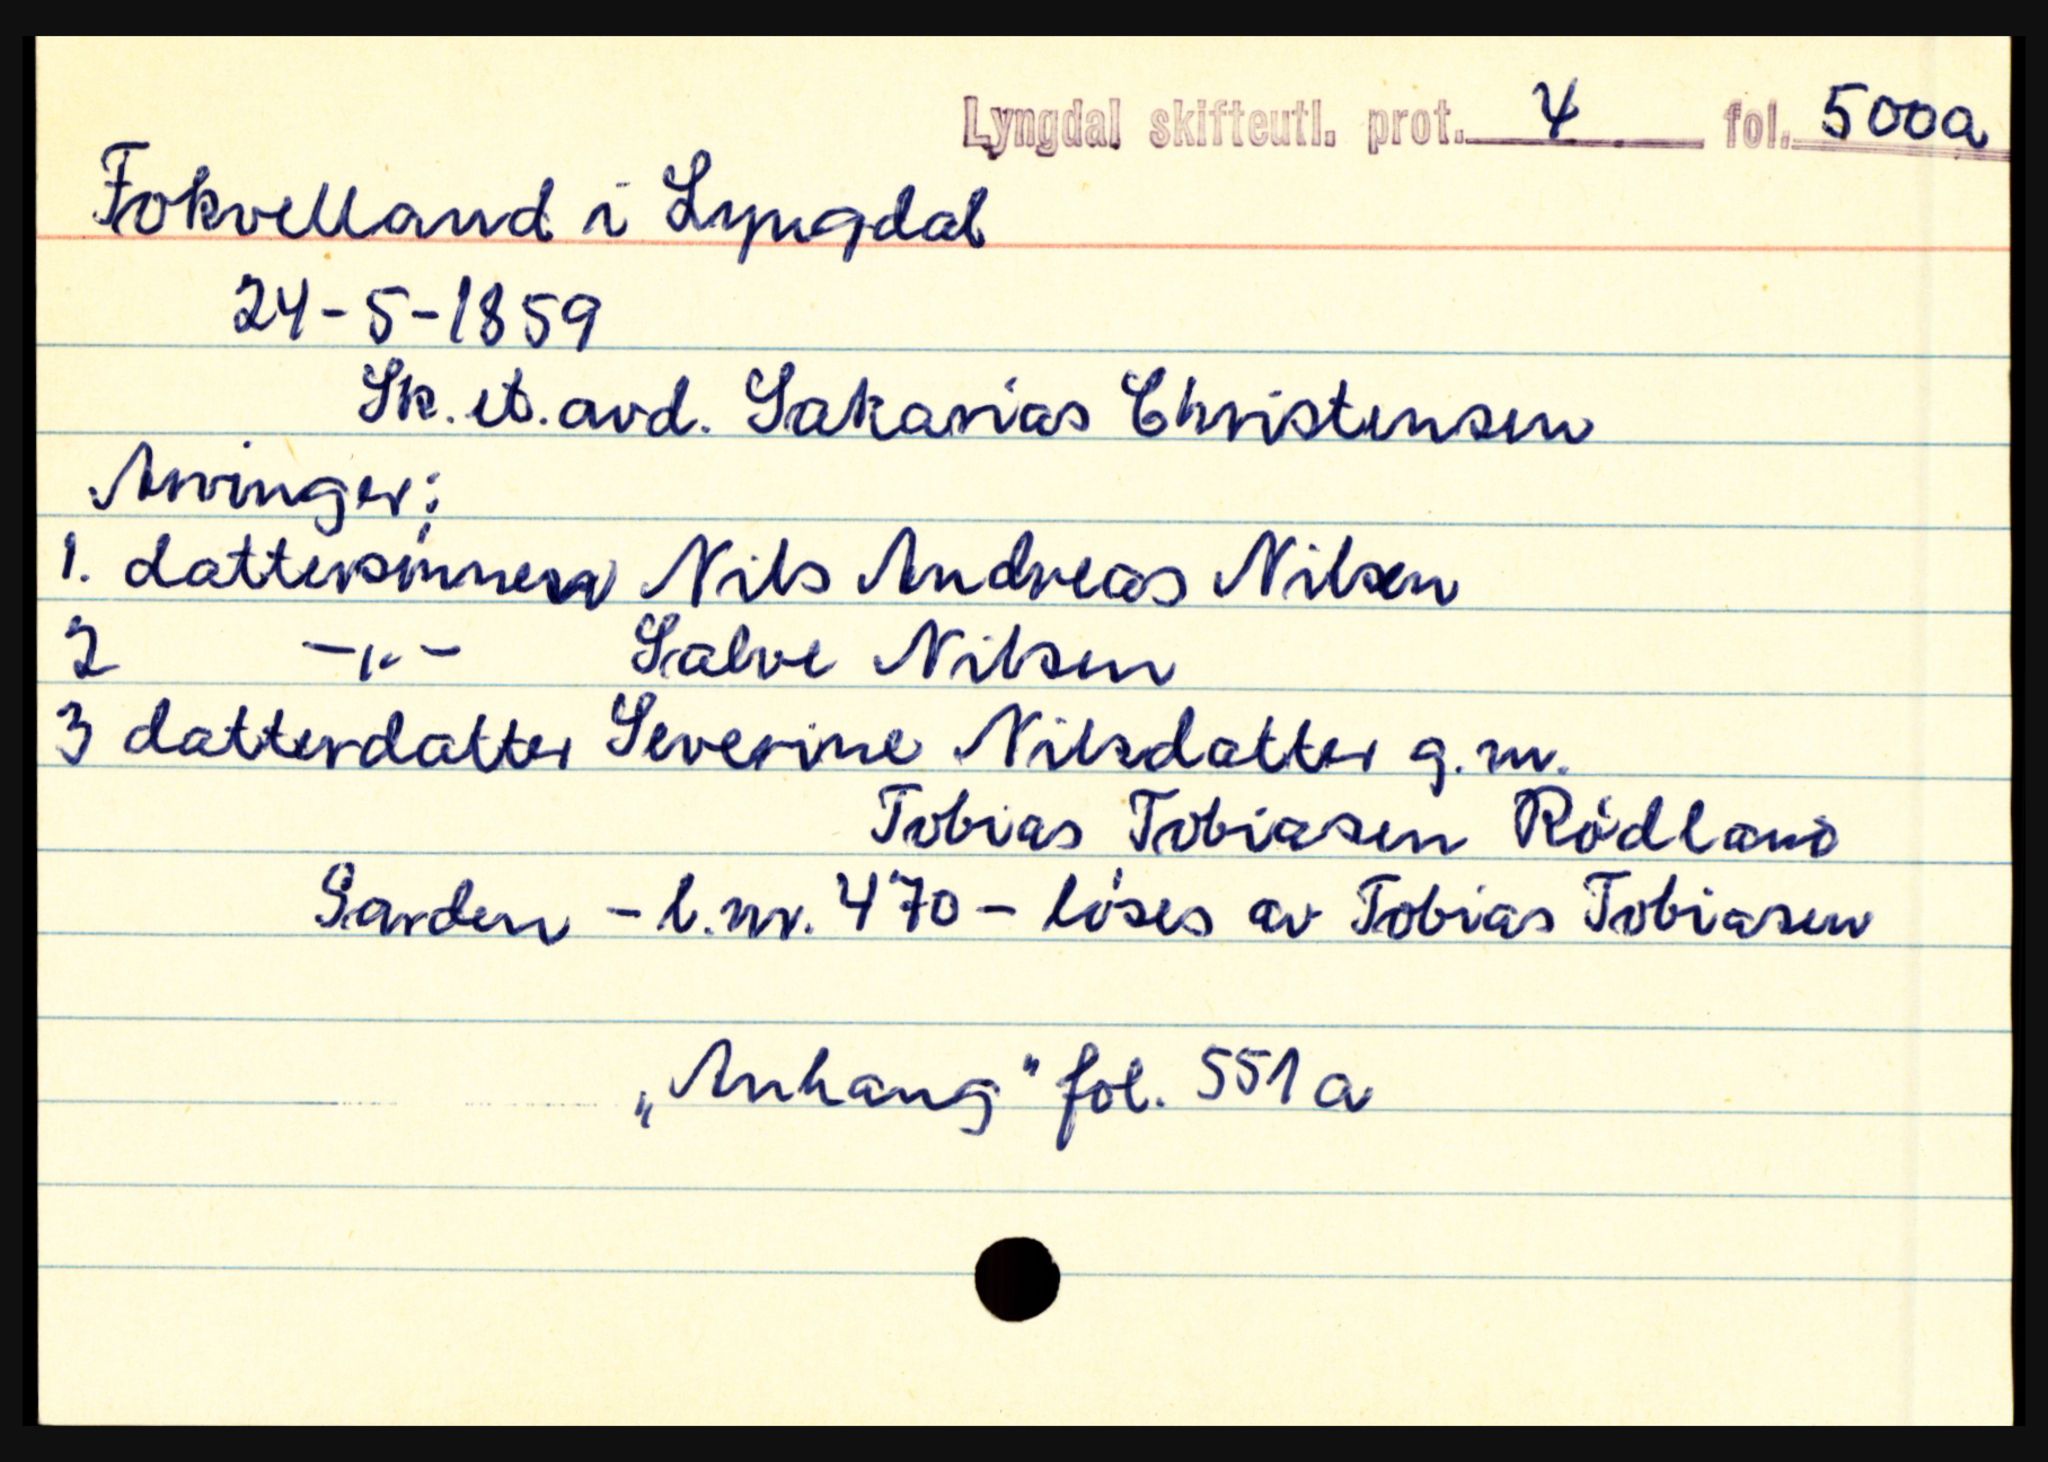 Lyngdal skifteutl. prot. 4 fol. 500a
Fokvelland i Lyngdal
24-5-1859
Sk. et. avd. Sakarias Christensen
Arvinger:
1. dattersønnen Nils Andreas Nilsen
2 -"- Salve Nilsen
3 datterdatter Severine Nilsdatter g. m.
Tobias Tobiasen Rødland
Garden - l. nr. 470 - løses av Tobias Tobiasen
„Anhang" fol. 551a